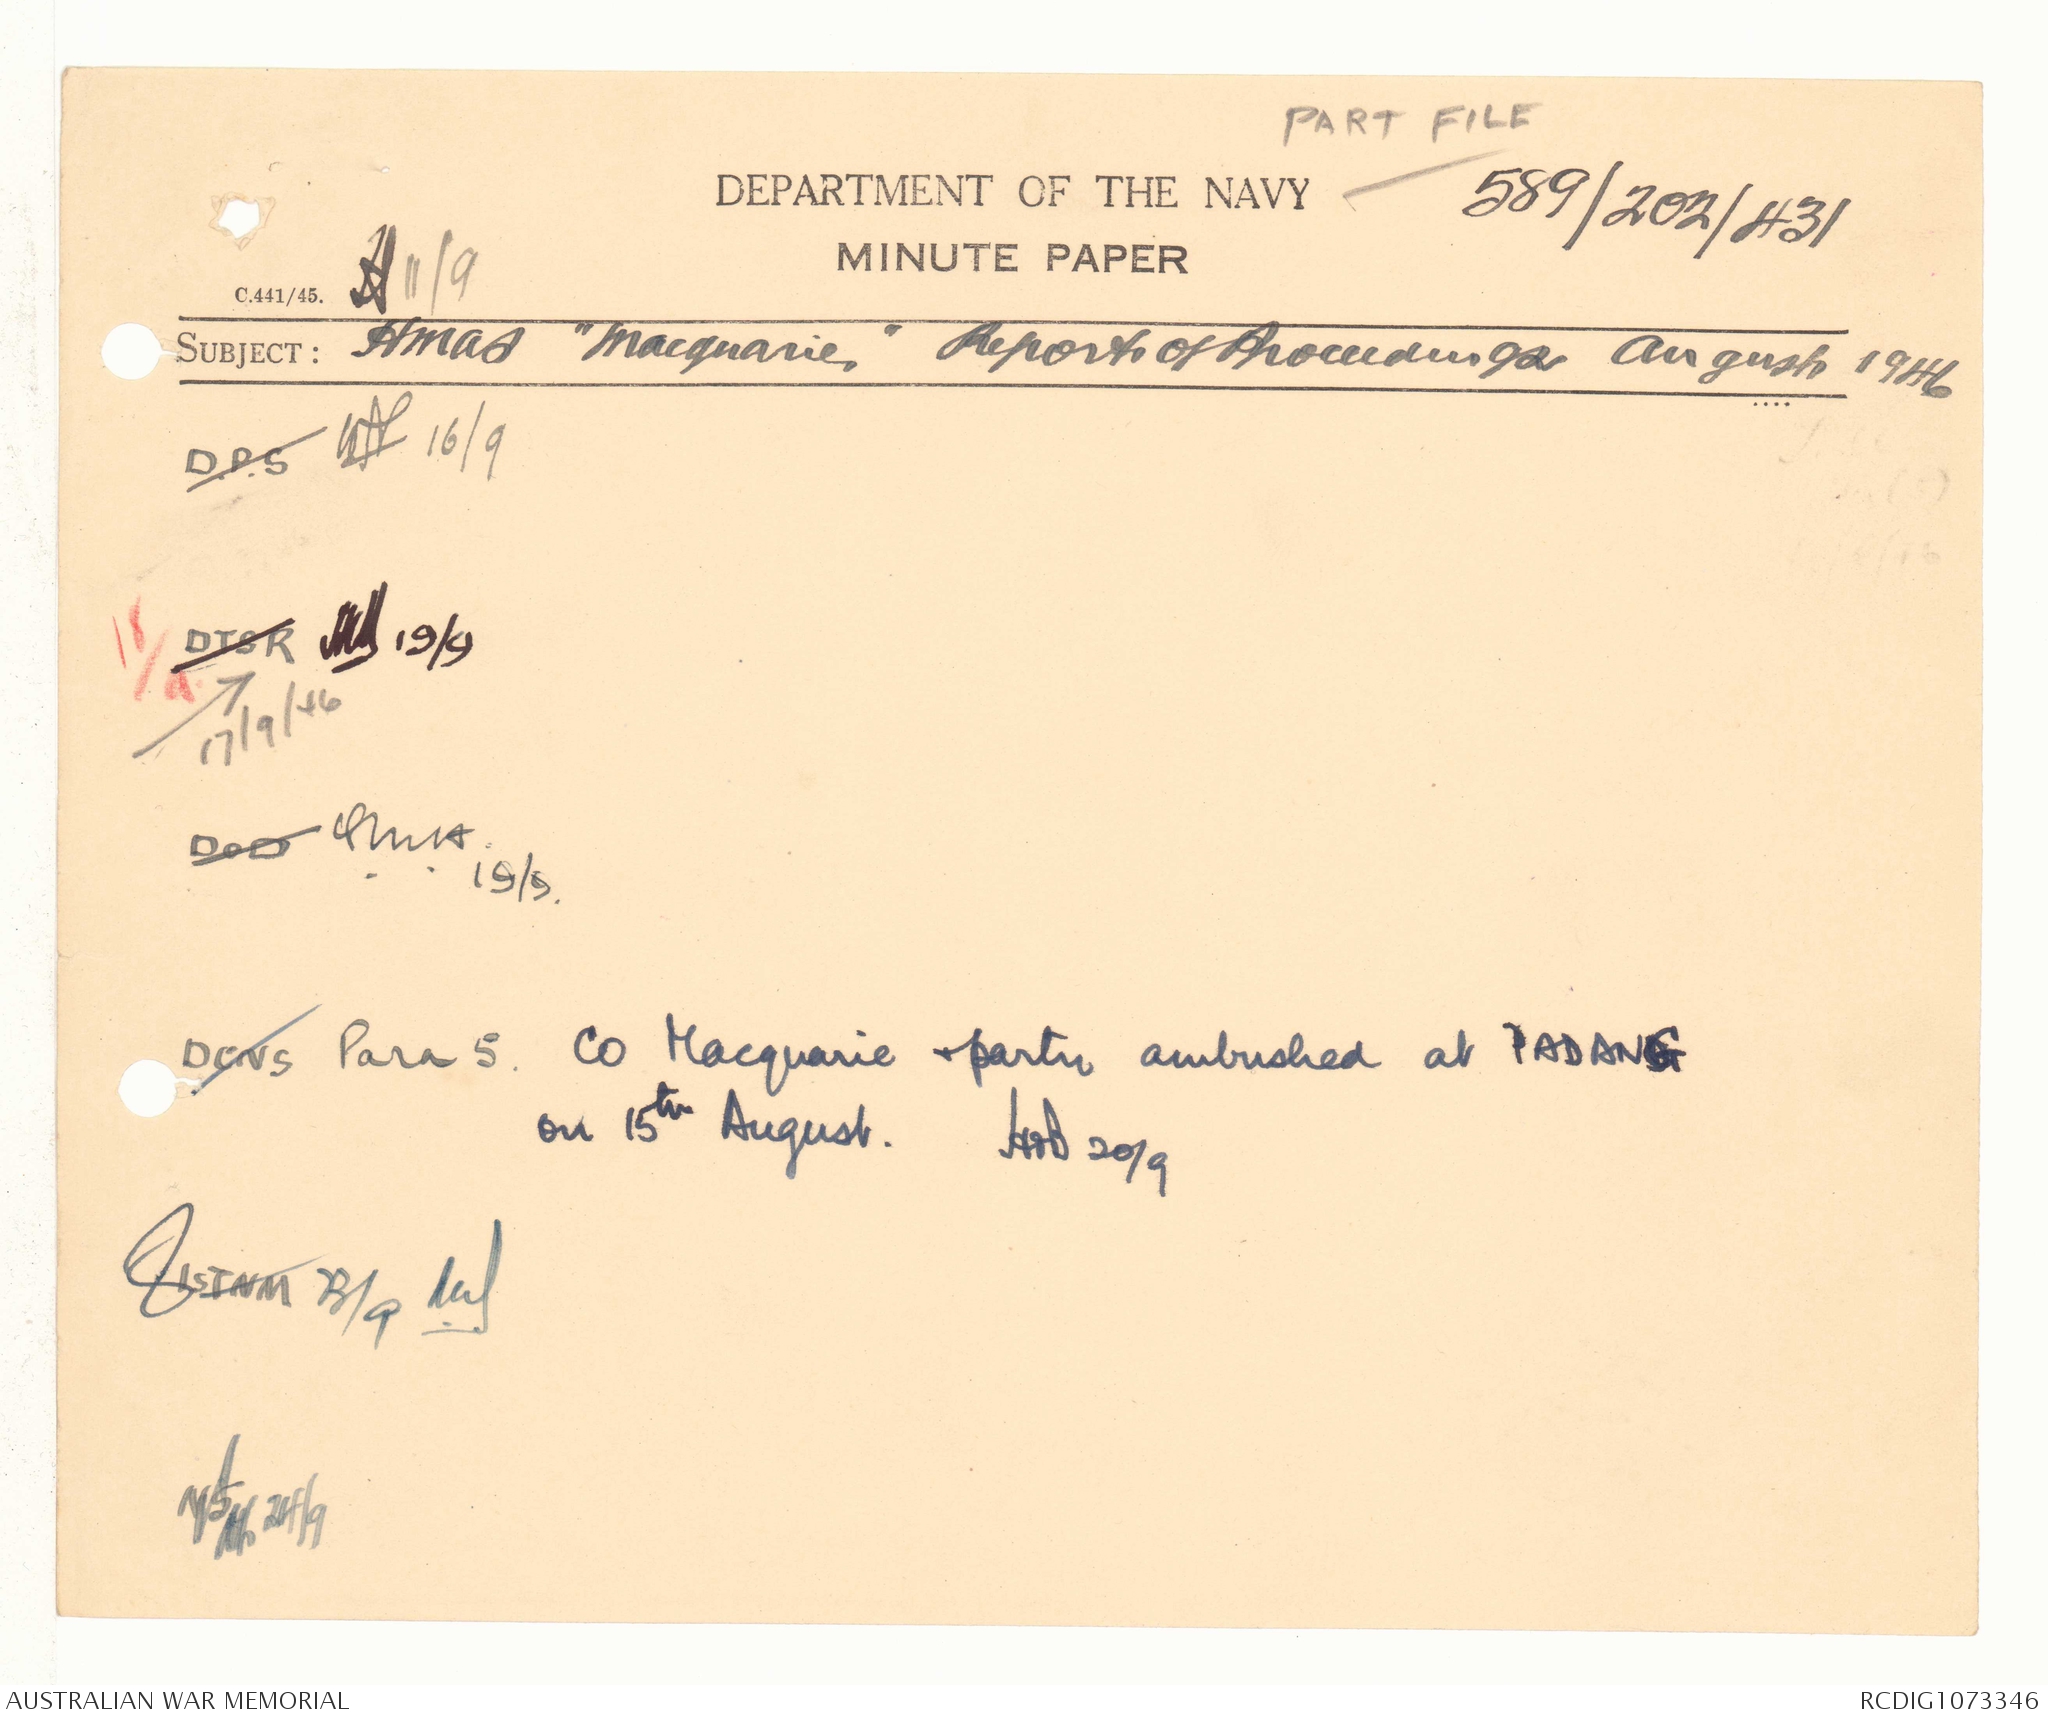 PART FILE
DEPARTMENT OF THE NAVY
589/202/431
MINUTE PAPER
C.441/45.
11/9
SUBJECT: HMAS "Macquarie" Report of Proceedings August 1946
....
D.P.S 16/9
DTSR 19/9
17/9/46
DoD
19/9.
DCNS Para 5. CO Macquarie + party ambushed at PADANG
on 15th August. 20/9
23/9
24/9
AUSTRALIAN WAR MEMORIAL
RCDIG1073346